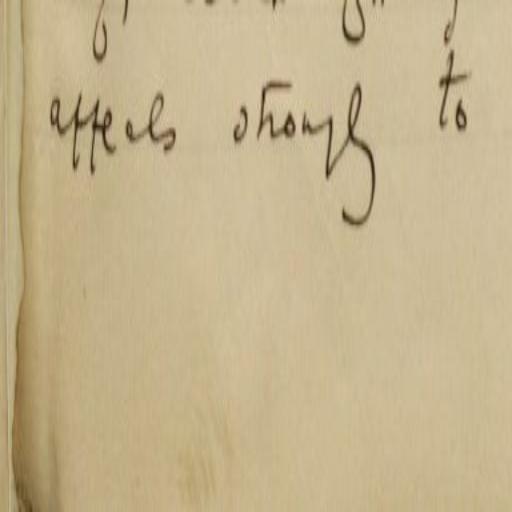 appeals strongly to